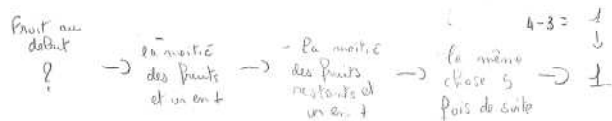 4-3= 1
↓
Fruit au
début
?
→ la moitié
des fruits
et un en +
→ - la moitié
des fruits
restants et
un en +
→ la même
chose 5
fois de suite
→ 1